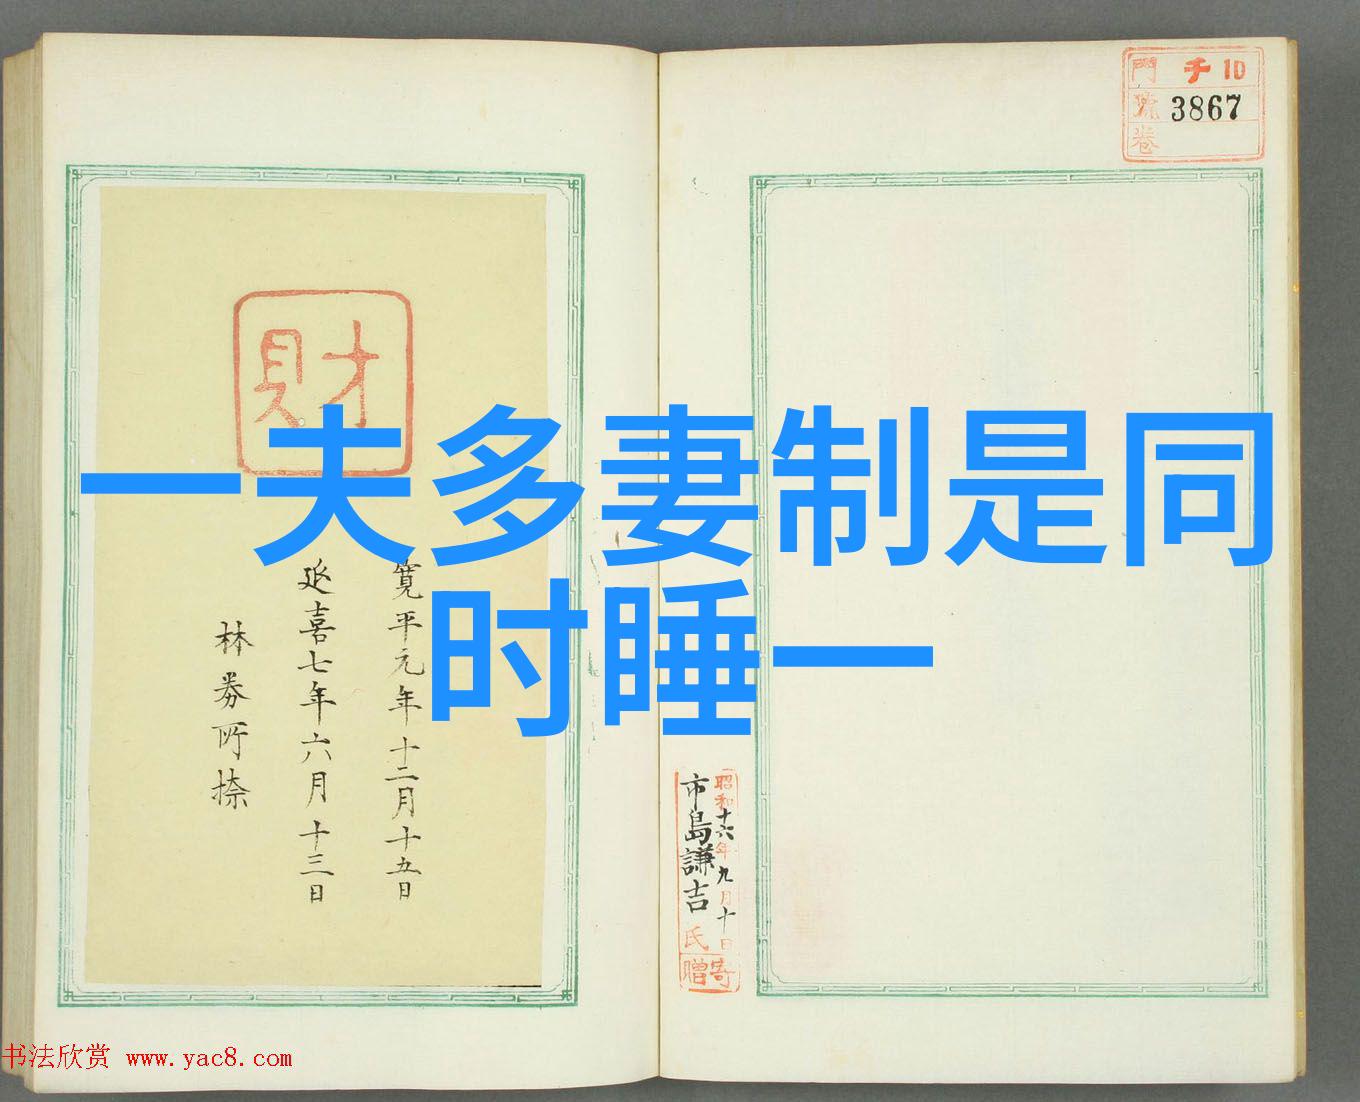 門 チ 10
號 3867
卷
財
一夫多妻制是同
时睡一
寛平元年十二月十五日
延喜七年六月十三日
林
所捺
昭和十六年九月十日
市島謙吉氏
寄贈
书法欣赏 www.yac8.com